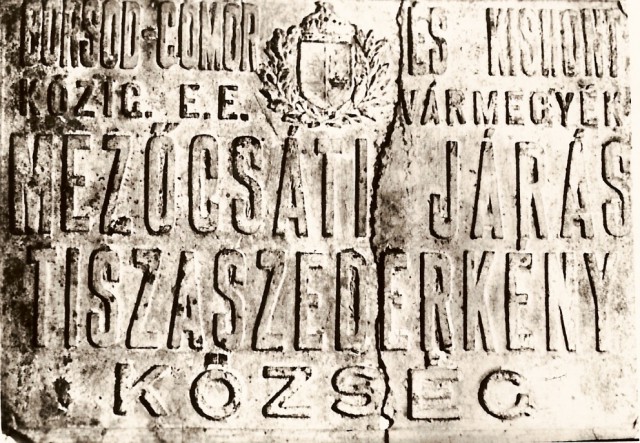 BORSOD-GÖMÖR ÉS KISHONT
KÖZIG. E.E. VÁRMEGYÉK
MEZŐCSÁTI JÁRÁS
TISZASZEDERKÉNY
KÖZSÉG